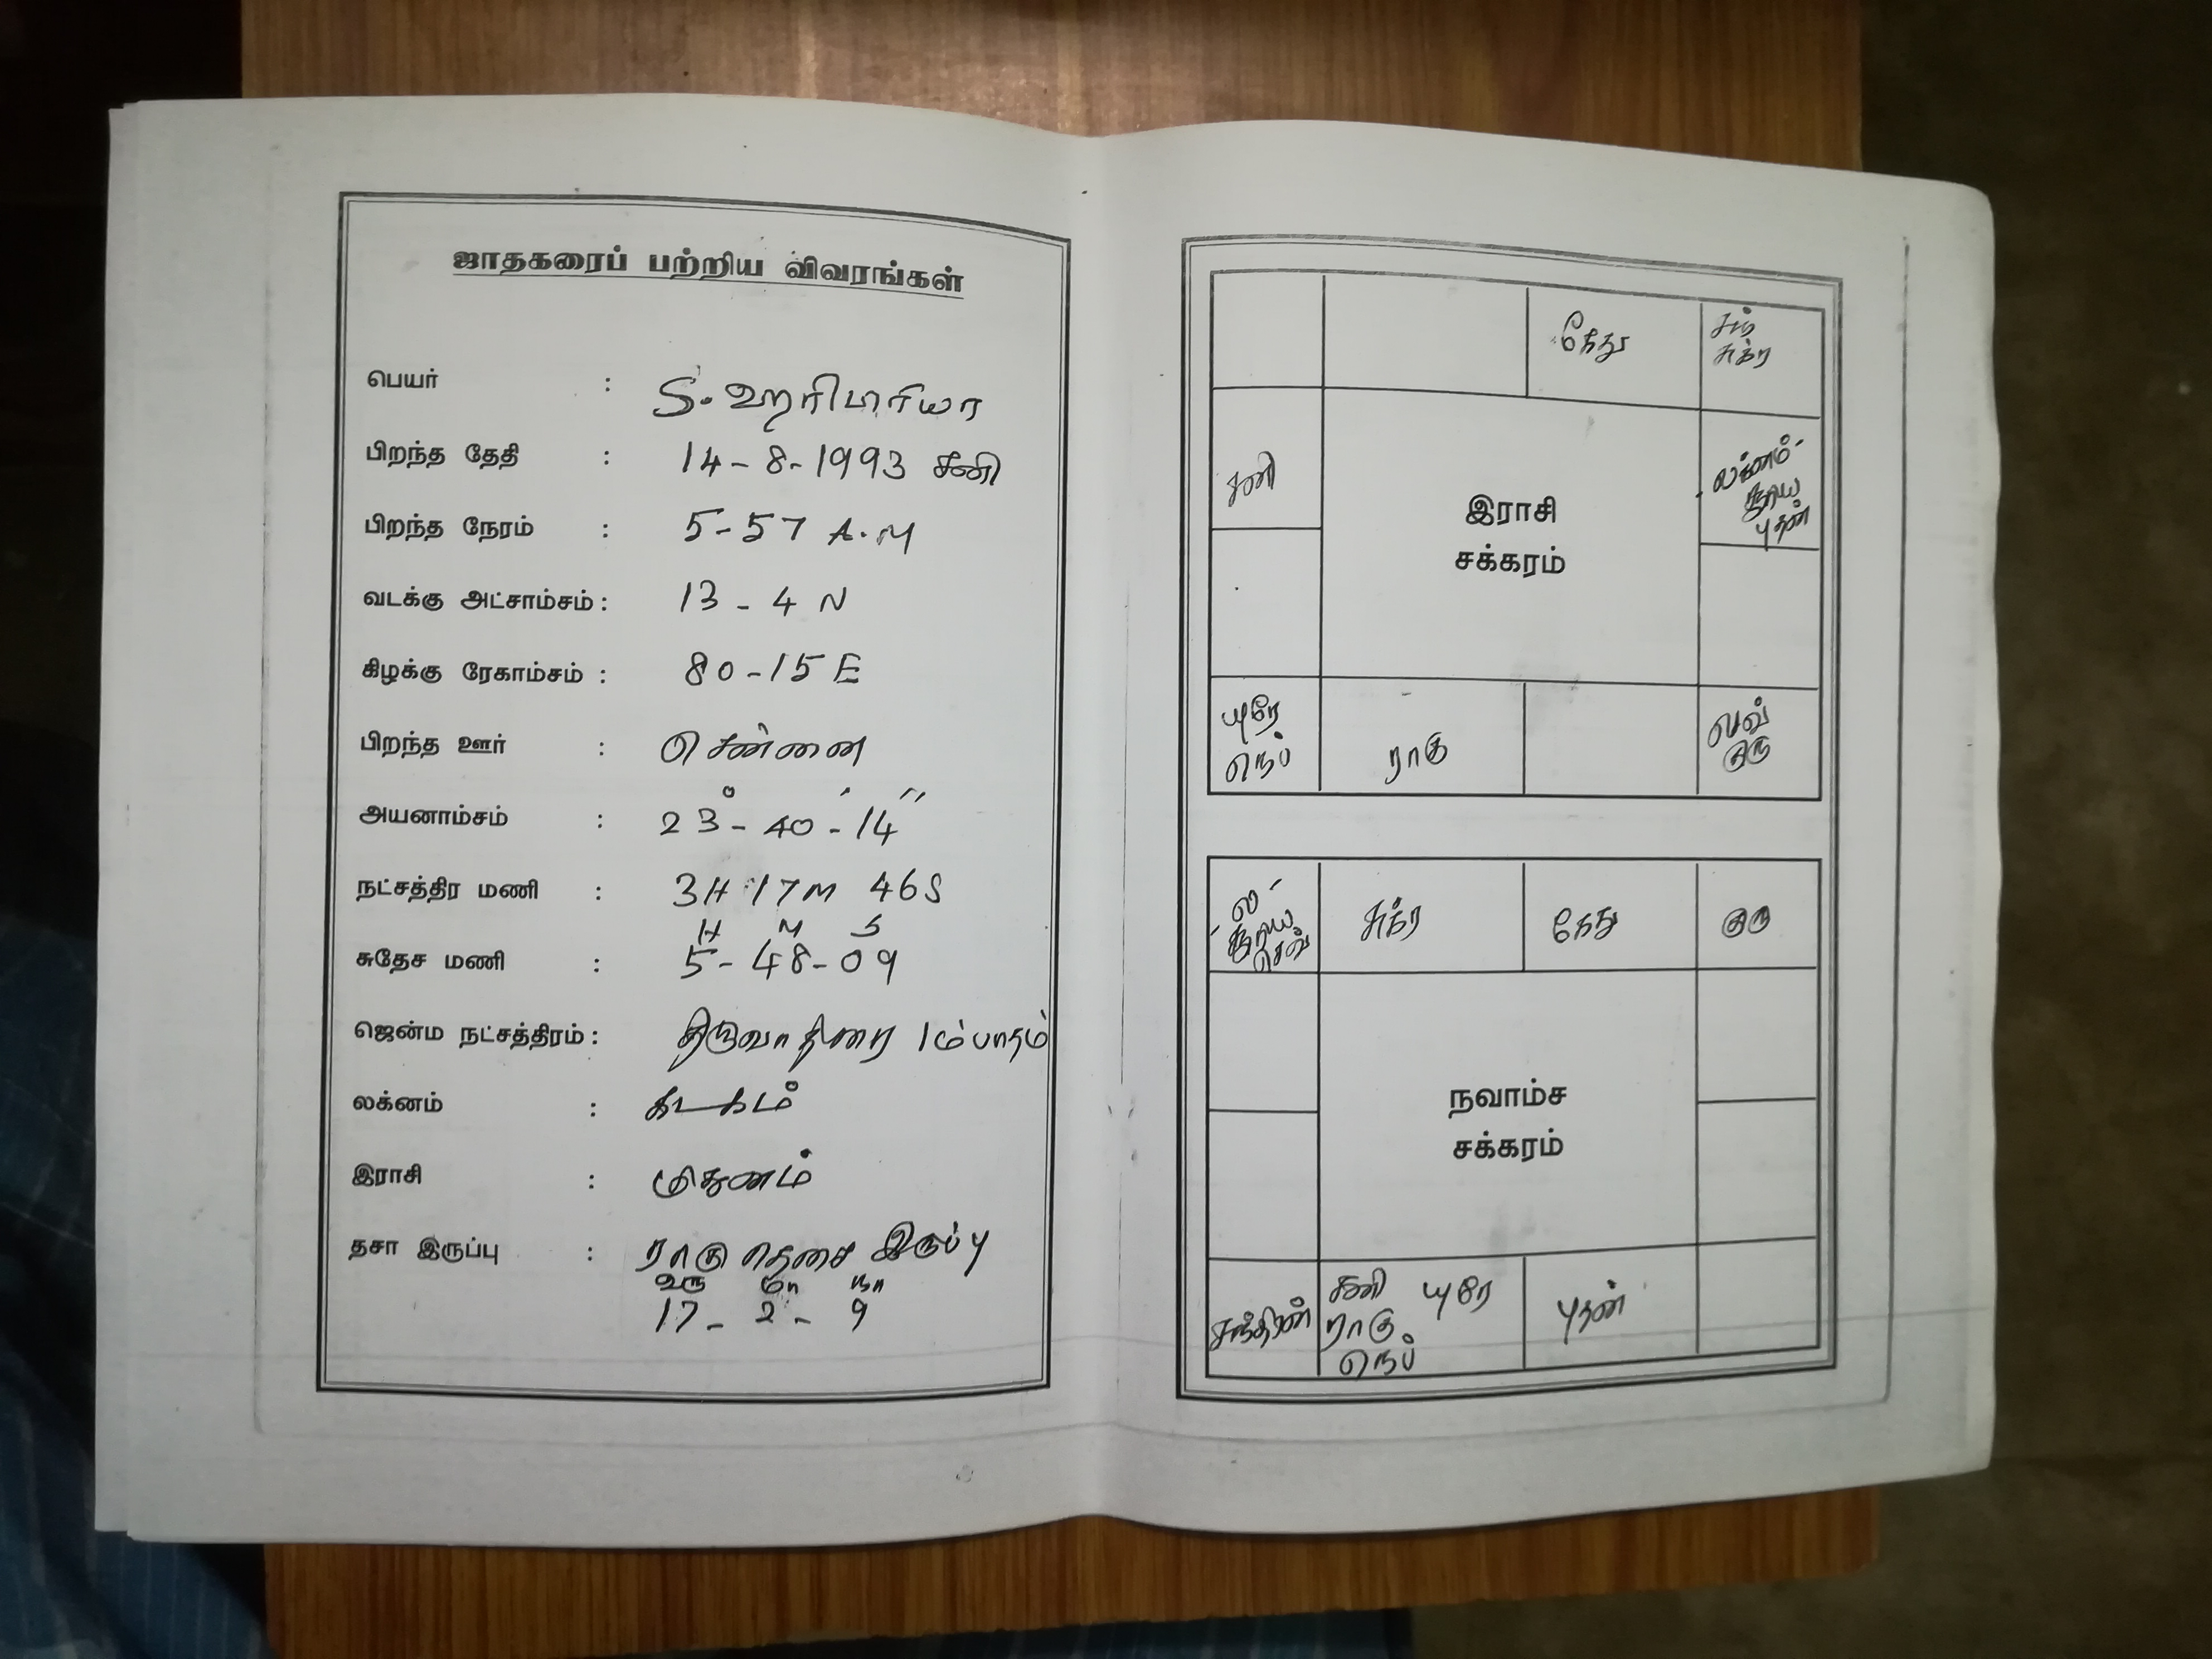 ஜாதகரைப் பற்றிய விவரங்கள்
பெயர் : S. ஹரிபிரியா
பிறந்த தேதி : 14-8-1993 சனி
பிறந்த நேரம் : 5-57 A.M
வடக்கு அட்சாம்சம் : 13-4 N
கிழக்கு ரேகாம்சம் : 80-15 E
பிறந்த ஊர் : சென்னை
அயனாம்சம் : 23°-40'-14"
நட்சத்திர மணி : 3H 17M 46S
H M S
சுதேச மணி : 5-48-09
ஜென்ம நட்சத்திரம் : திருவாதிரை 1ம் பாதம்
லக்னம் : கடகம்
இராசி : மிதுனம்
தசா இருப்பு : ராகு தெசை இருப்பு
வரு மா நா
17-2-9
கேது
சந்
சுக்ர
சனி
லக்னம்
சூரிய
புதன்
இராசி
சக்கரம்
யுரே
நெப்
ராகு
செவ்
குரு
ல
சூரிய
செவ்
சுக்ர
கேது
குரு
நவாம்ச
சக்கரம்
சந்திரன்
சனி யுரே
ராகு
நெப்
புதன்